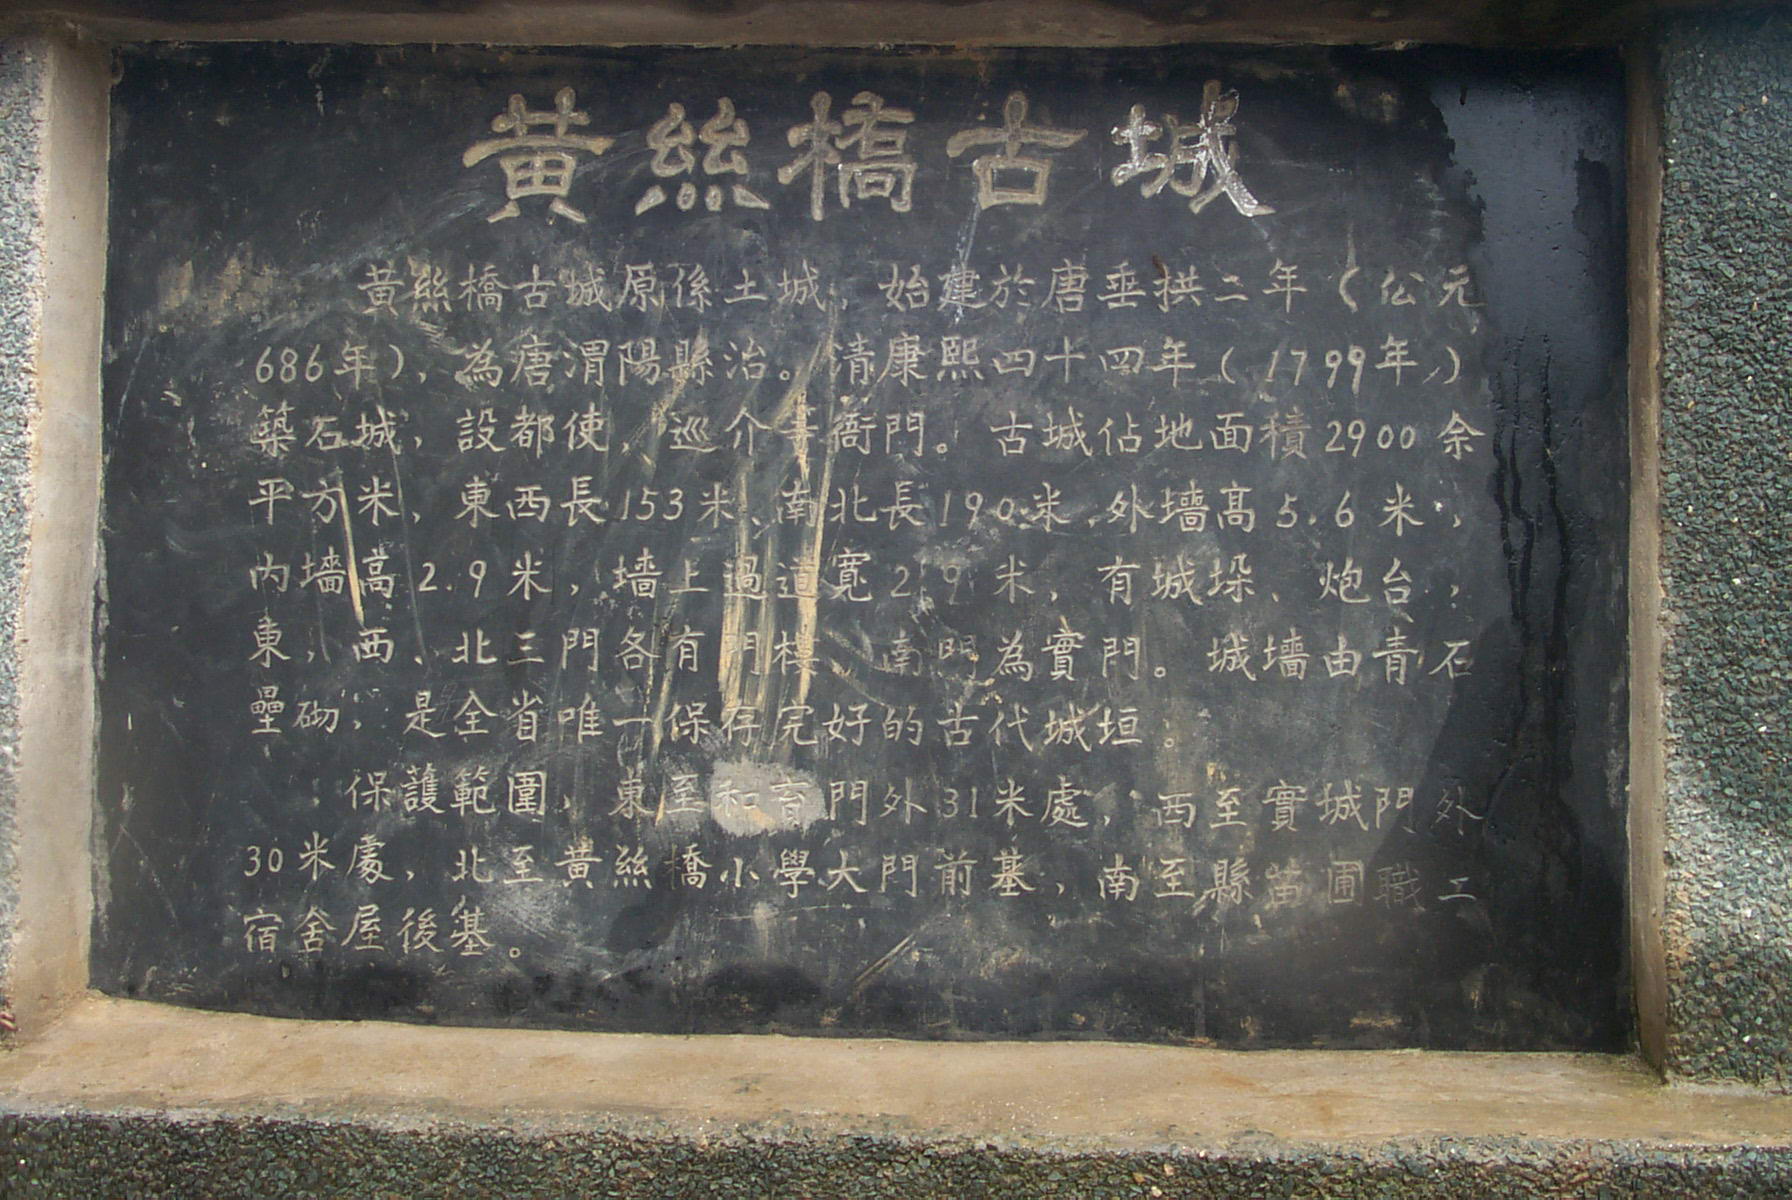 黃絲橋古城
黃絲橋古城原係土城，始建於唐垂拱二年（公元
686年），為唐渭陽縣治。清康熙四十四年（1799年）
築石城，設都使，巡介等衙門。古城佔地面積2900余
平方米，東西長153米、南北長190米，外墻高5.6米，
內墻高2.9米，墻上過道寬2.9米，有城垛、炮台，
東，西、北三門各有門樓，南門為實門。城墻由青石
壘砌，是全省唯一保存完好的古代城垣。
保護範圍，東至和育門外31米處，西至實城門外
30米處，北至黃絲橋小學大門前基，南至縣苗圃職工
宿舍屋後基。